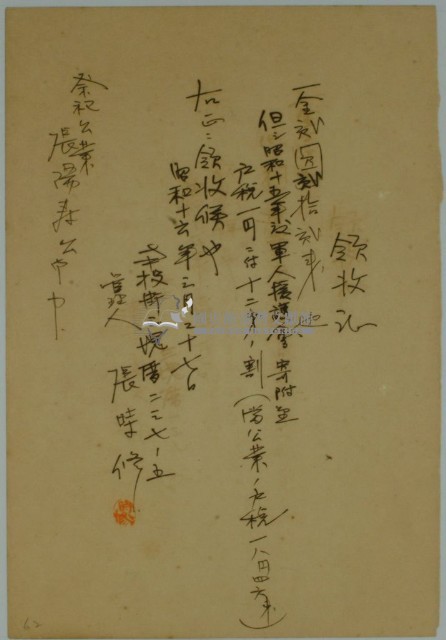 領收証
一金弐圓弐拾弐銭也
但シ昭和十五年度軍人援護會寄附金
戸税一円ニ付十二銭ノ割(當公業ノ戸税一八円四六銭)
右正ニ領收候也
昭和十六年三月二十七日
街 厝二三七ノ五
管理人 張時修
祭祀公業
張陽寿公 中
62